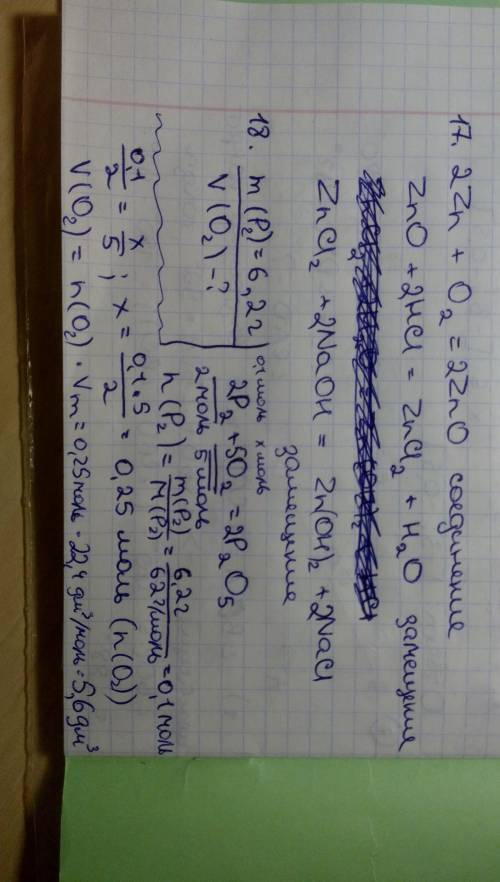 17. 2Zn + O₂ = 2ZnO соединение
ZnO + 2HCl = ZnCl₂ + H₂O замещение
ZnCl₂ + 2NaOH = Zn(OH)₂ + 2NaCl
замещение
18. m(P₂) = 6,2г
V(O₂) - ?
0,1 моль x моль
2P₂ + 5O₂ = 2P₂O₅
2 моль 5 моль
n(P₂) = m(P₂)/M(P₂) = 6,2г/62г/моль = 0,1 моль
0,1/2 = x/5; x = 0,1·5/2 = 0,25 моль (n(O₂))
V(O₂) = n(O₂) · Vm = 0,25 моль · 22,4 дм³/моль = 5,6 дм³